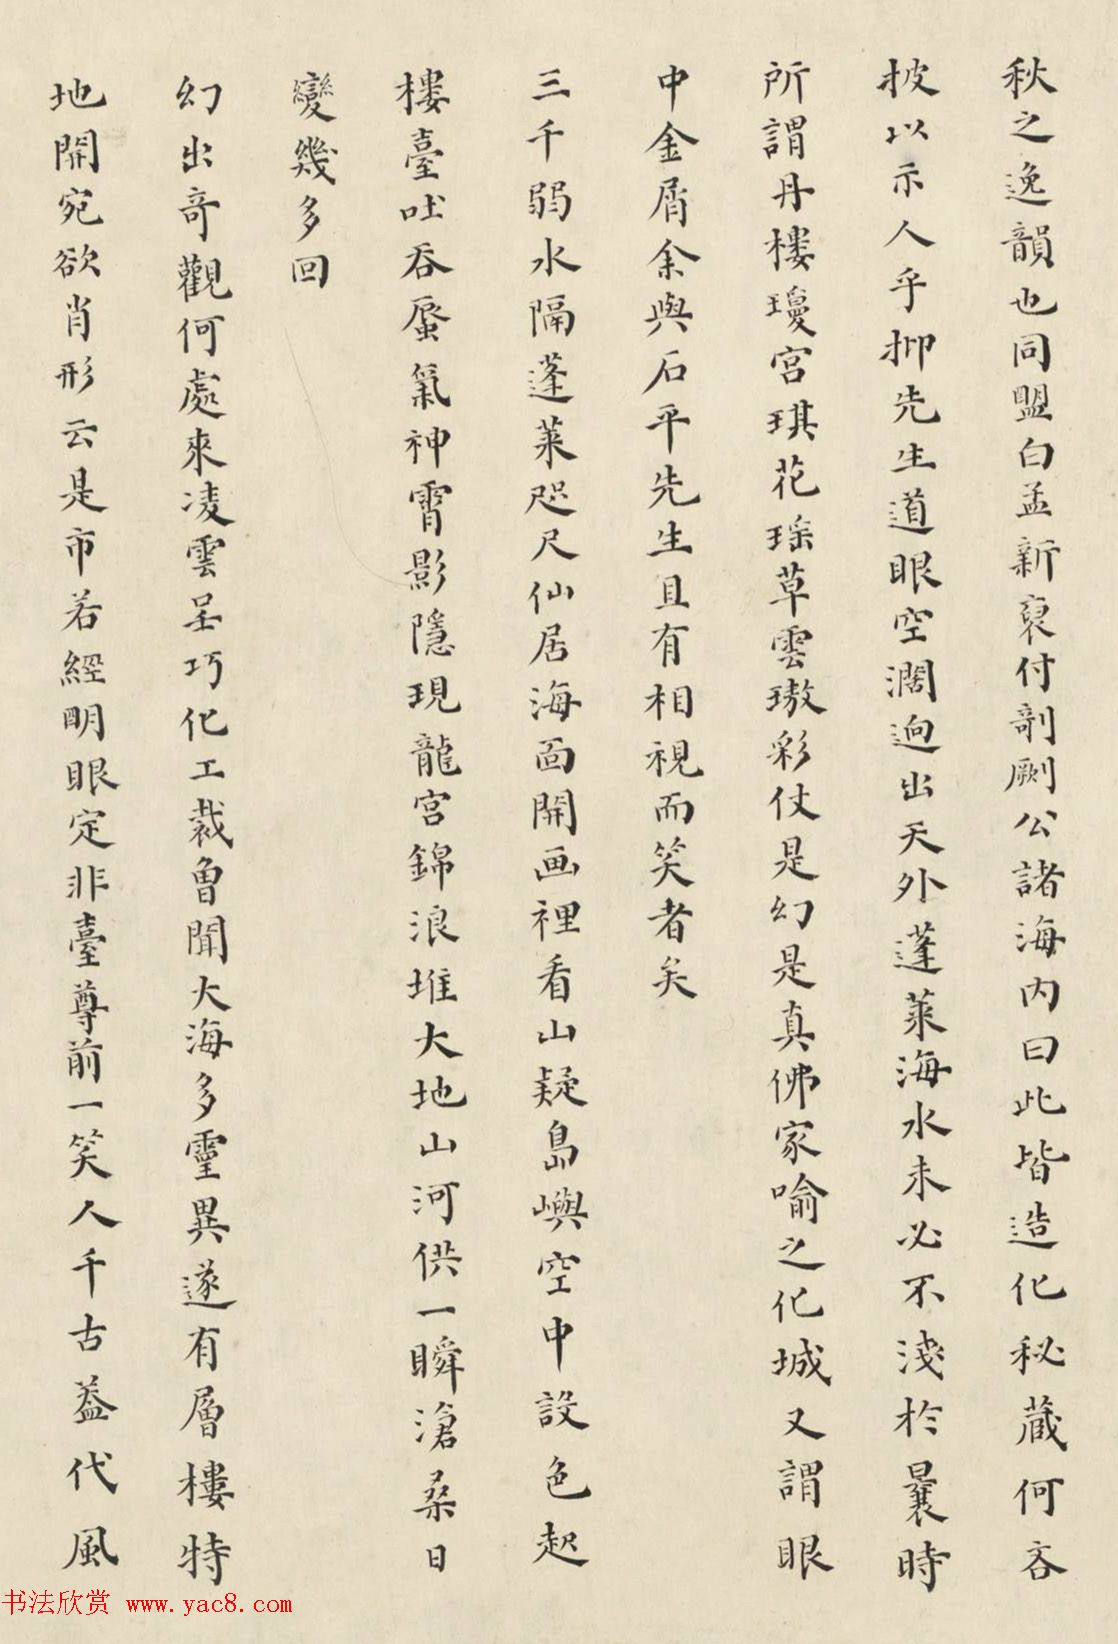 秋之逸韻也同盟白孟新裒付剞劂公諸海内曰此皆造化秘蔵何吝
披以示人乎抑先生道眼空濶逈出天外蓬萊海水未必不淺於曩時
所謂丹樓瓊宮琪花瑤草雲璈彩仗是幻是真佛家喻之化城又謂眼
中金屑余與石平先生且有相視而笑者矣
三千弱水隔蓬萊咫尺仙居海靣開画裡看山疑島嶼空中設色起
樓臺吐吞蜃氣神霄影隱現龍宮錦浪堆大地山河供一瞬滄桑日
變幾多回
幻出奇觀何處來凌雲呈巧化工裁曾聞大海多靈異遂有層樓特
地開宛欲肖形云是市若經明眼定非臺尊前一笑人千古葢代風
书法欣赏 www.yac8.com